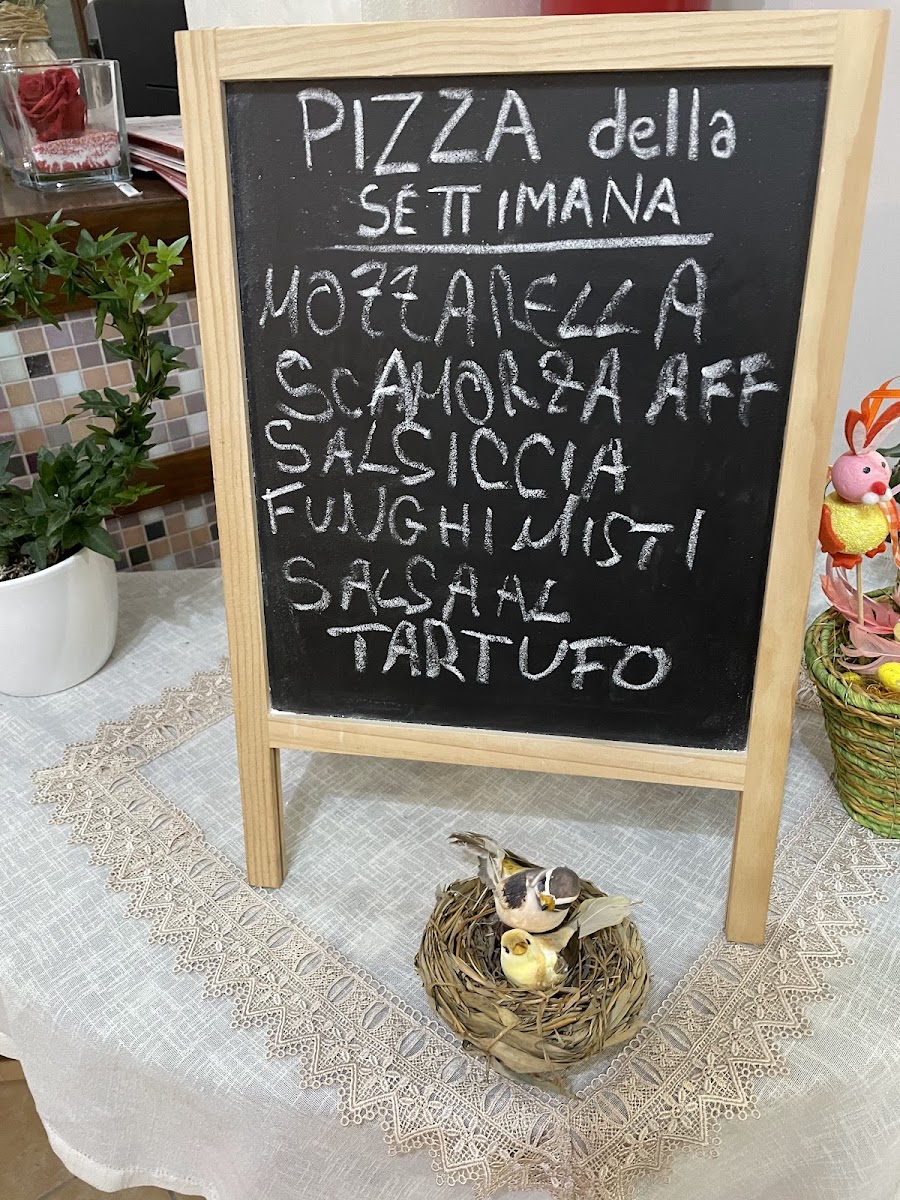 PIZZA della
SETTIMANA
MOZZARELLA
SCAMORZA AFF
SALSICCIA
FUNGHI MISTI
SALSA AL
TARTUFO